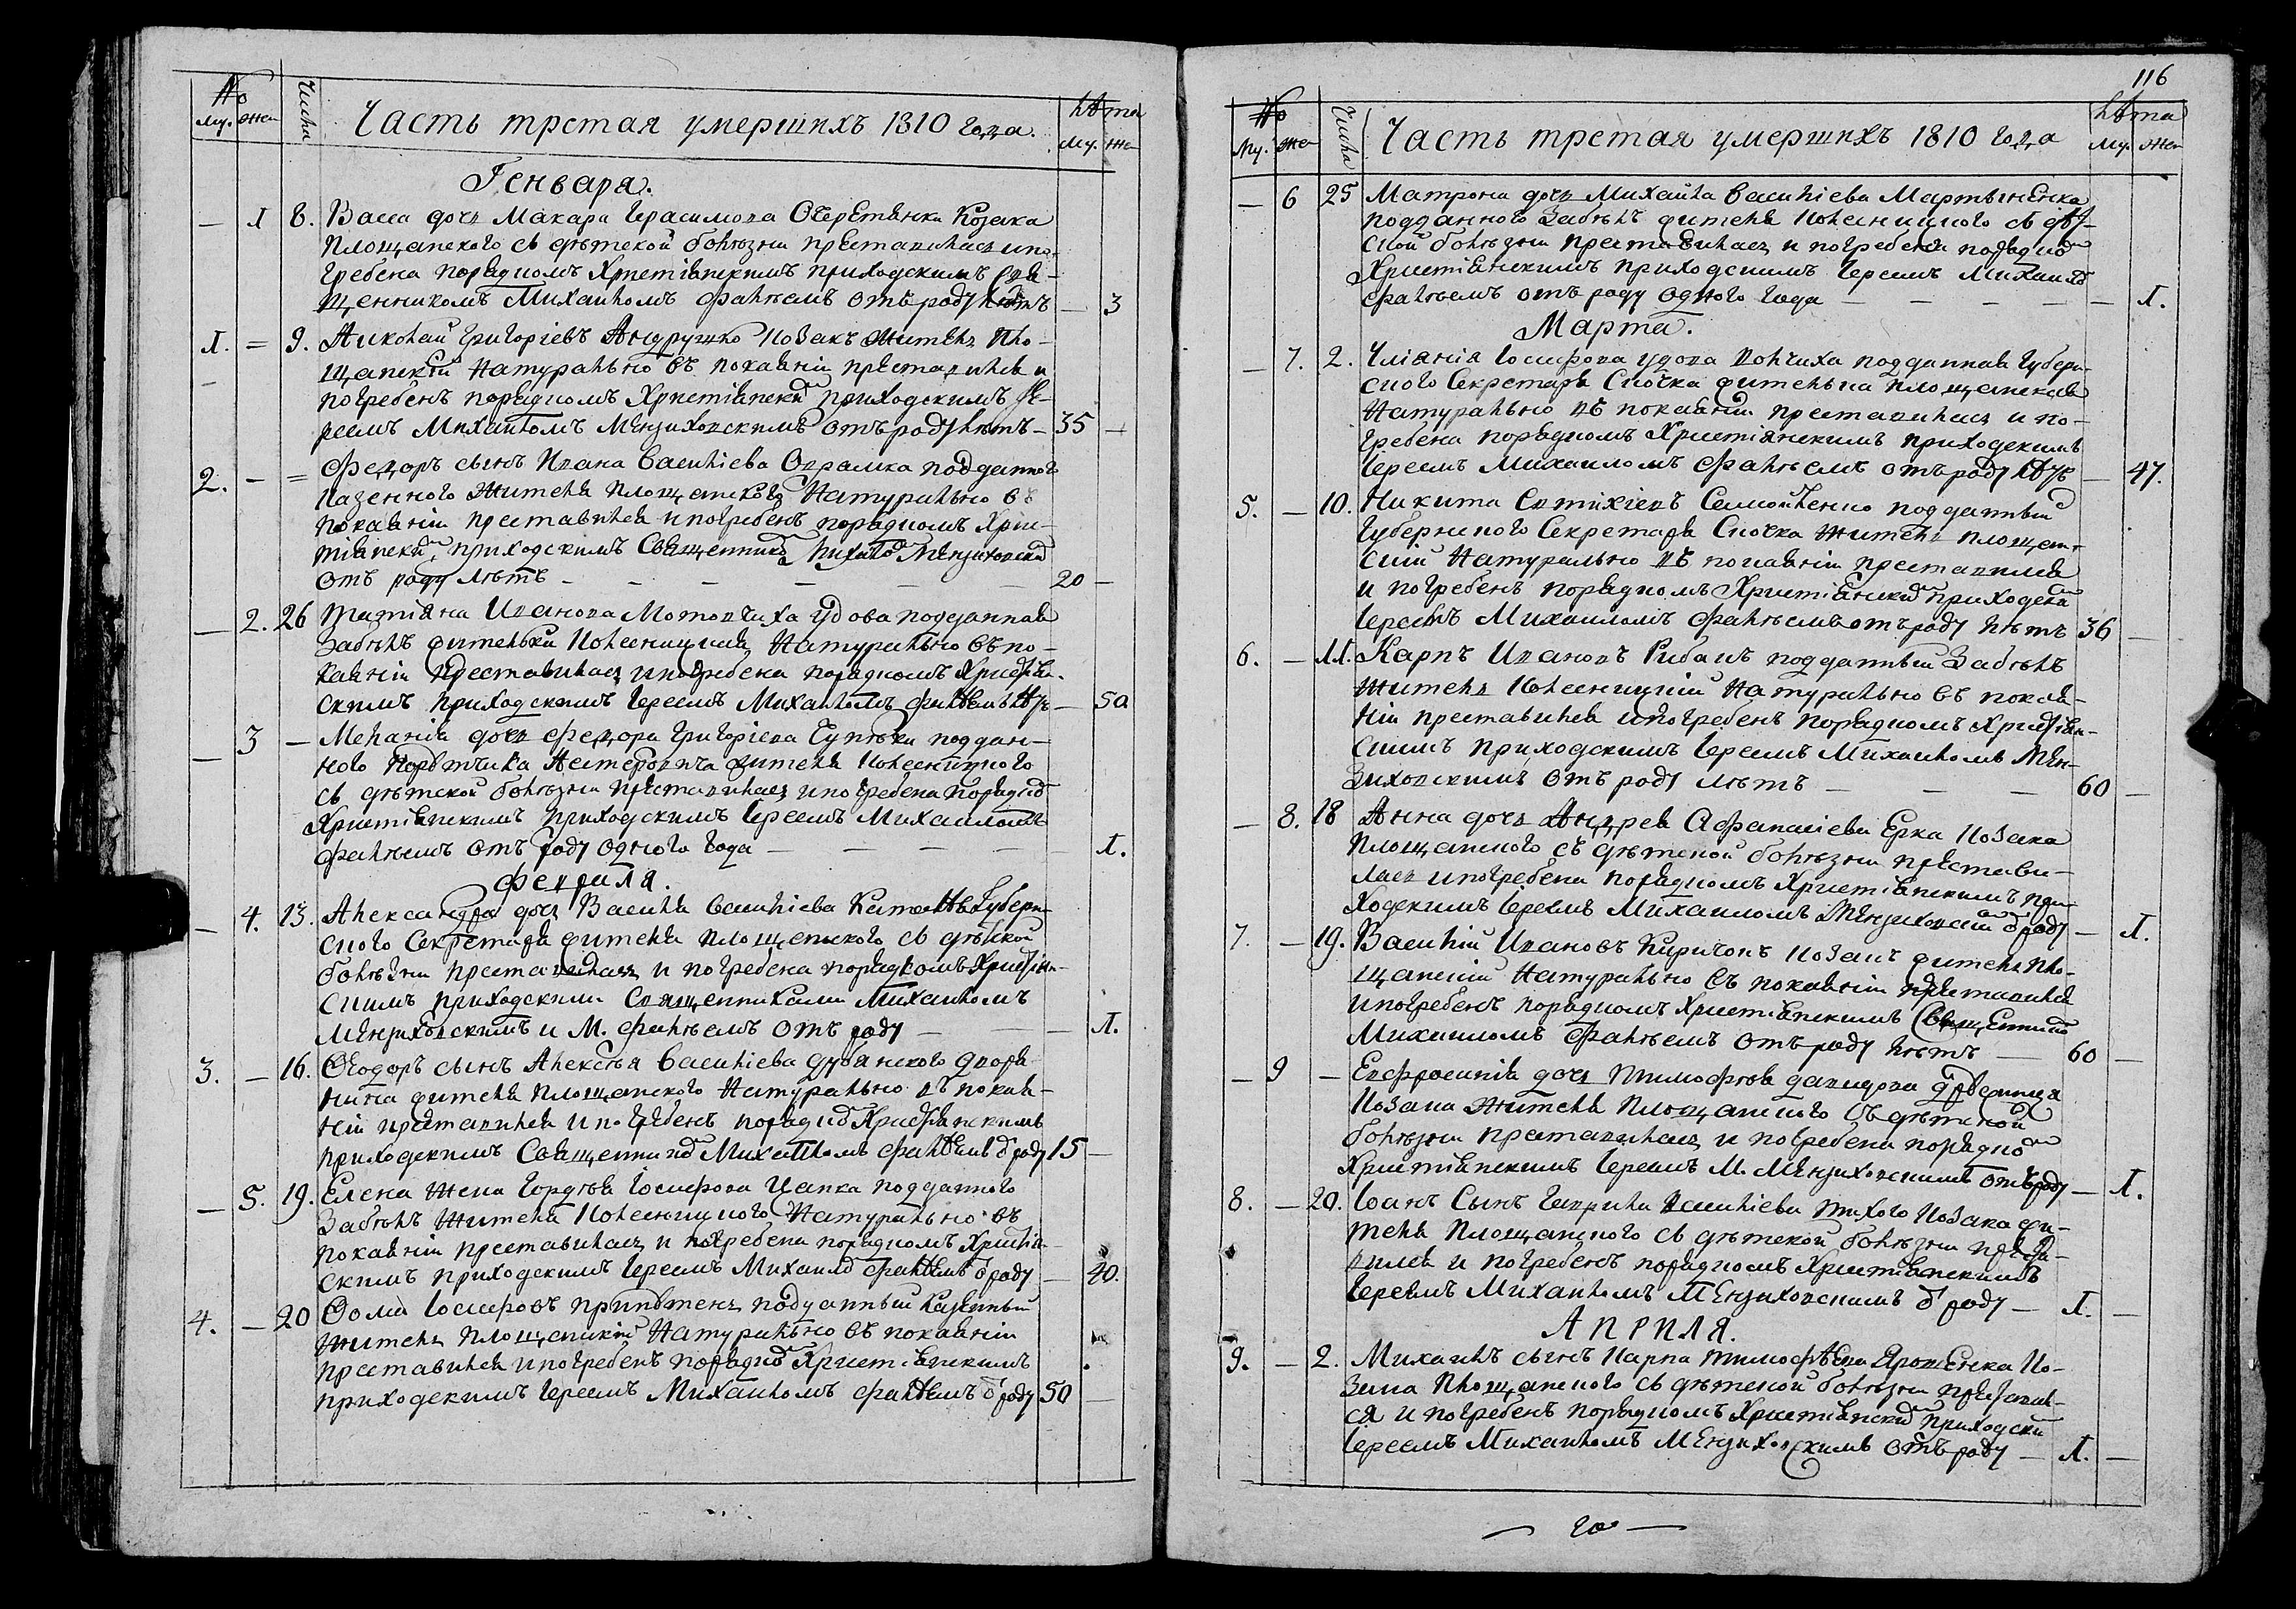 № Числа Часть третая умершихъ 1810 года. Лѣта
му. жен му. же
Генваря.
— 1 8. Васса дочь Макара Герасимова Очеретянка Козака
Площанского съ дѣтской болѣзни преставилась и по-
гребена порядкомъ Христіанскимъ приходскимъ Свя-
щенникомъ Михаиломъ Фалѣемъ отъ роду лѣтъ — 3
1. = 9. Николай Григоріевъ Андрушко козакъ житель Пло-
щанскій натурально въ покаяніи преставился и
погребенъ порядкомъ Христіански приходскимъ Іе-
реемъ Михаиломъ Мензиховскимъ отъ роду лѣтъ — 35 —
2. — = Федоръ сынъ Ивана Василіева подданного
казенного жителя площанского натурально въ
покаяніи преставился и погребенъ порядкомъ Хрис-
тіански приходскимъ Священнико Михаило Мензиховски
отъ роду лѣтъ — — — — — 20 —
— 2. 26 Татіяна Иванова Мотовчиха удова подданная
Забѣлъ жителька Колесницкая натурально въ по-
каяніи преставилась и погребена порядкомъ Христіан-
скимъ приходскимъ Іереемъ Михаиломъ Фалѣемъ — 50
3 — Меланія дочь Федора Григоріева поддан-
ного Поручика Нестеровича жителя Колесницкого
съ дѣтской болѣзни преставилась и погребена порядко
Христіанскимъ приходскимъ Іереемъ Михаиломъ
Фалѣемъ отъ роду одного года — — — — — 1.
Февраля.
— 4. 13. Александра дочь Василя Василіева Губерн-
ского Секретаря жителя площанского съ дѣтской
болѣзни преставилась и погребена порядкомъ Христіан-
скимъ приходскими Священниками Михаиломъ
Мензиховскимъ и М. Фалѣемъ отъ роду — — — 1.
3. — 16. Ѳеодоръ сынъ Алексѣя Василіева дворя-
нина жителя площанского натурально въ покая-
ніи преставился и погребенъ порядко Христіанскимъ
приходскимъ Священнико Михаиломъ Фалѣемъ ѿ роду 15 —
— 5. 19. Елена жена Гордѣя Іосифова Цапка подданного
Забѣлъ жителя Колесницкого натурально въ
покаяніи преставилась и погребена порядкомъ Христіан-
скимъ приходскимъ Іереемъ Михаило Фалѣемъ ѿ роду — 40.
4. — 20 Ѳома Іосифовъ подданный казенный
житель площанскій натурально въ покаяніи
преставился и погребенъ порядко Христіанскимъ
приходскимъ Іереемъ Михаиломъ Фалѣемъ ѿ роду 50 —
116
№ Числа Часть третая умершихъ 1810 года Лѣта
му. жен му. жен
— 6 25 Матрона дочь Михаила Василіева Мартыненка
подданного Забѣлъ жителя Колесницкого съ дѣт-
ской болѣзни преставилась и погребена порядко
Христіанскимъ приходскимъ Іереемъ Михаило
Фалѣемъ отъ роду одного года — — — — — 1.
Марта.
— 7. 2. Уліянія Іосифова удова подданная Губерн-
ского Секретаря Сиочка жителька площанская
натурально въ покаяніи преставилась и по-
гребена порядкомъ Христіянскимъ приходскимъ
Іереемъ Михаиломъ Фалѣемъ отъ роду — 47.
5. — 10. Никита Самойленко подданный
Губернского Секретаря Сиочка житель площан-
ский натурально въ покаяніи преставился
и погребенъ порядкомъ Христіянски приходски
Іереемъ Михаиломъ Фалѣемъ отъ роду лѣтъ 36 —
6. — 11. Карпъ Ивановъ Рибакъ подданный Забѣлъ
житель Колесницкій натурально въ покая-
ніи преставился и погребенъ порядкомъ Христіан-
скимъ приходскимъ Іереемъ Михаиломъ Мен-
зиховскимъ отъ роду лѣтъ — — — 60 —
— 8. 18 Анна дочь Андрея Афанасіева Ерка козака
площанского съ дѣтской болѣзни престави-
лась и погребена порядкомъ Христіанскимъ при-
ходскимъ Іереемъ Михаиломъ Мензиховски ѿ роду — 1.
7. — 19. Василій Ивановъ Киричокъ козакъ житель пло-
щанскій натурально въ покаяніи преставился
и погребенъ порядкомъ Христіанскимъ Священнико
Михаиломъ Фалѣемъ отъ роду лѣтъ — 60 —
— 9 — Евфросинія дочь Тимофѣя Давидова
козака жителя площанского съ дѣтской
болѣзни преставилась и погребена порядко
Христіанскимъ Іереемъ М. Мензиховскимъ отъ роду — 1.
8. — 20. Іоанъ сынъ Гаврила Василіева Тихого козака жи-
теля площанского съ дѣтской болѣзни преста-
вился и погребенъ порядкомъ Христіанскимъ
Іереемъ Михаиломъ Мензиховскимъ ѿ роду — 1. —
Априля.
9. — 2. Михаилъ сынъ Карпа Тимофѣева Ярошенка ко-
зака площанского съ дѣтской болѣзни преставил-
ся и погребенъ порядкомъ Христіански приходски
Іереемъ Михаиломъ Мензиховскимъ отъ роду — 1. —